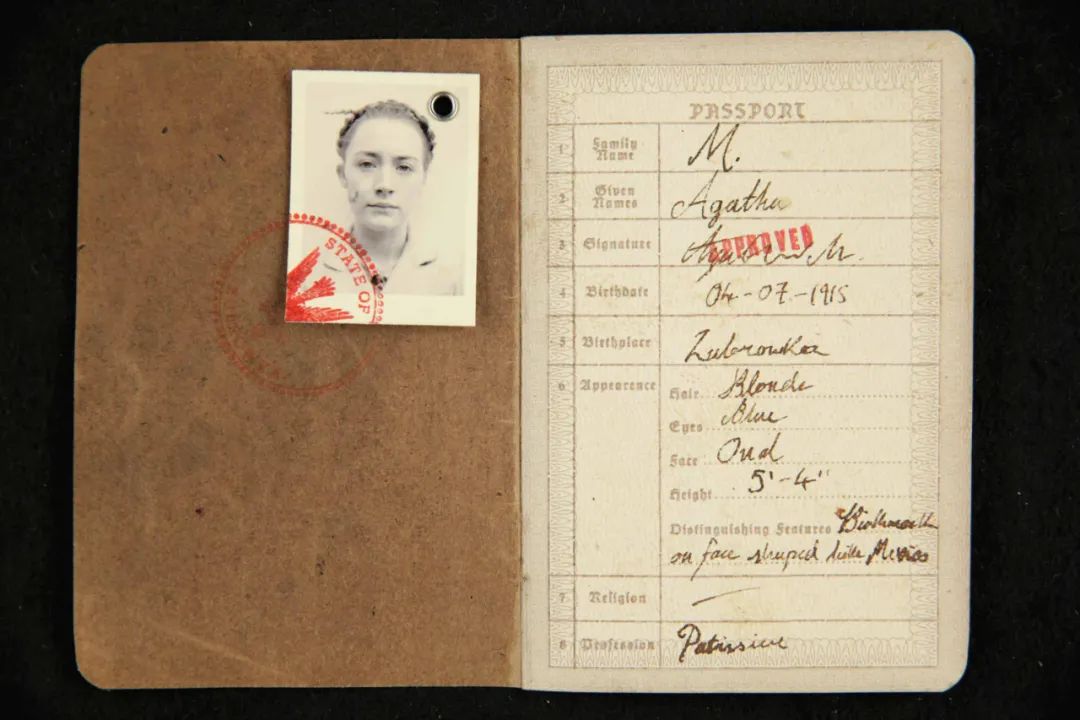 STATE OF
PASSPORT
1 Family Name M.
2 Given Names Agatha
3 Signature Agatha M.
APPROVED
4 Birthdate 04-07-1915
5 Birthplace Zubrowka
6 Appearence Hair Blonde
Eyes Blue
Face Oval
Height 5'-4"
Distinguishing Features Birthmark
on face shaped like Mexico
7 Religion —
8 Profession Patissier